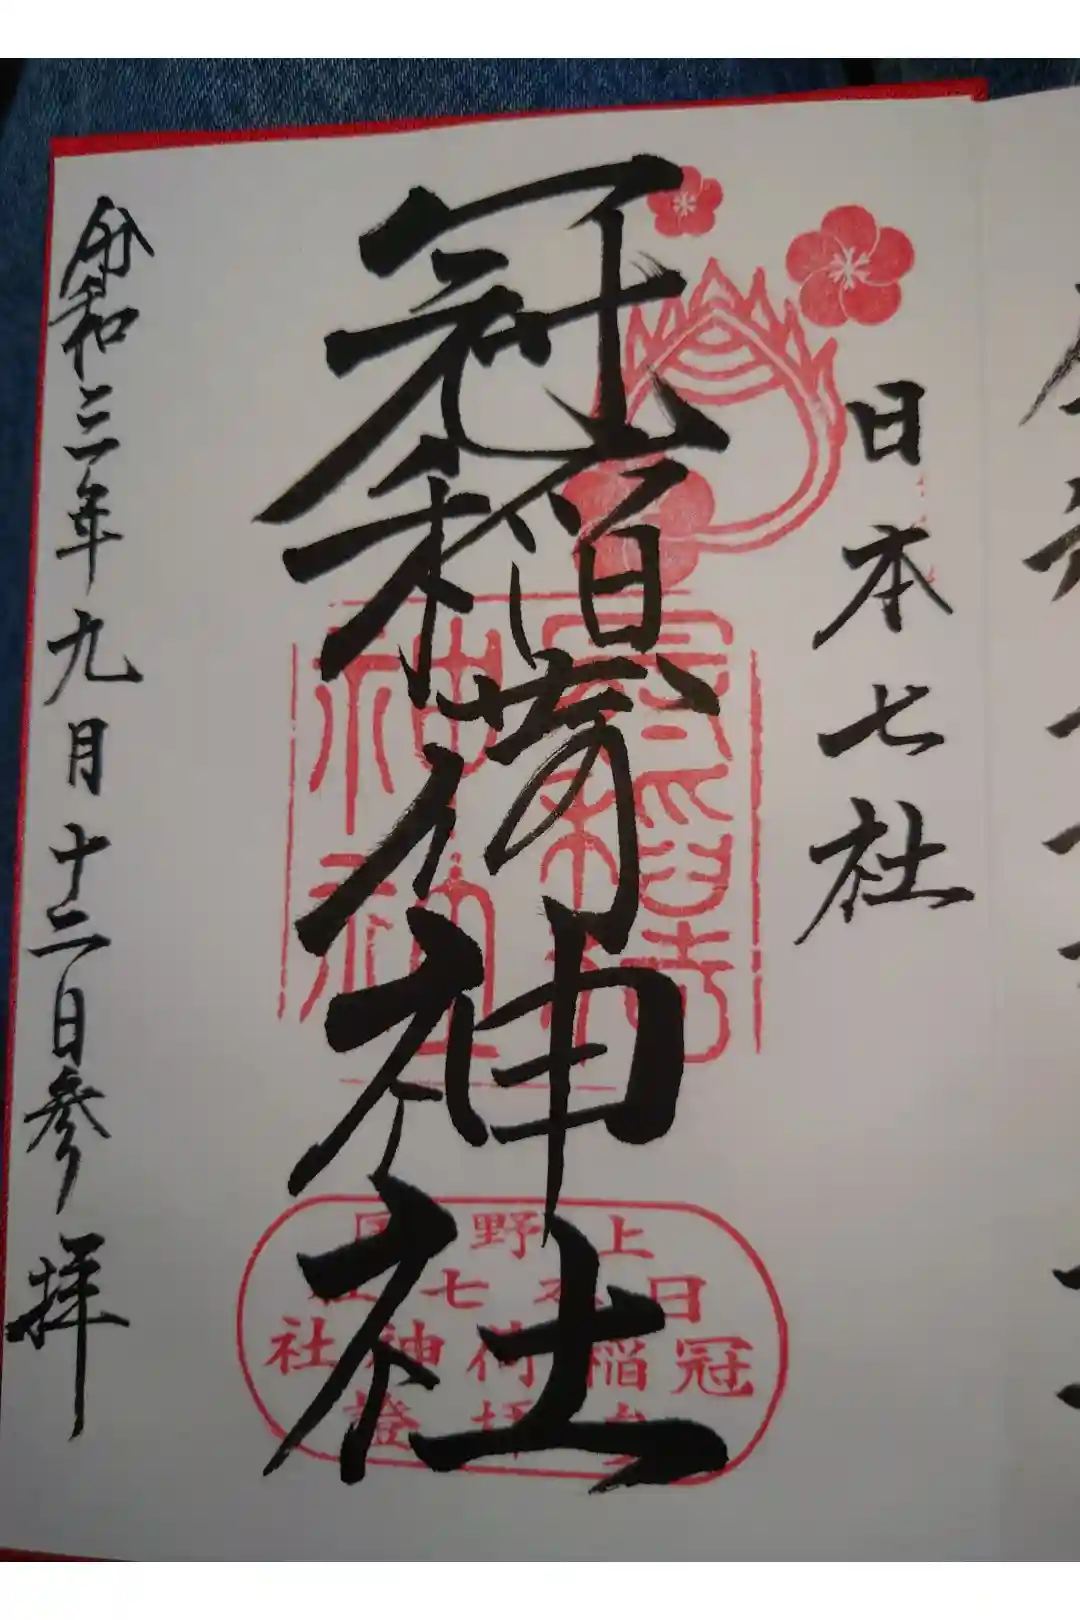 日本七社
冠稲荷神社
令和三年九月十二日参拝
冠稲荷神社
上野国
日本七社
冠稲荷神社
参拝證